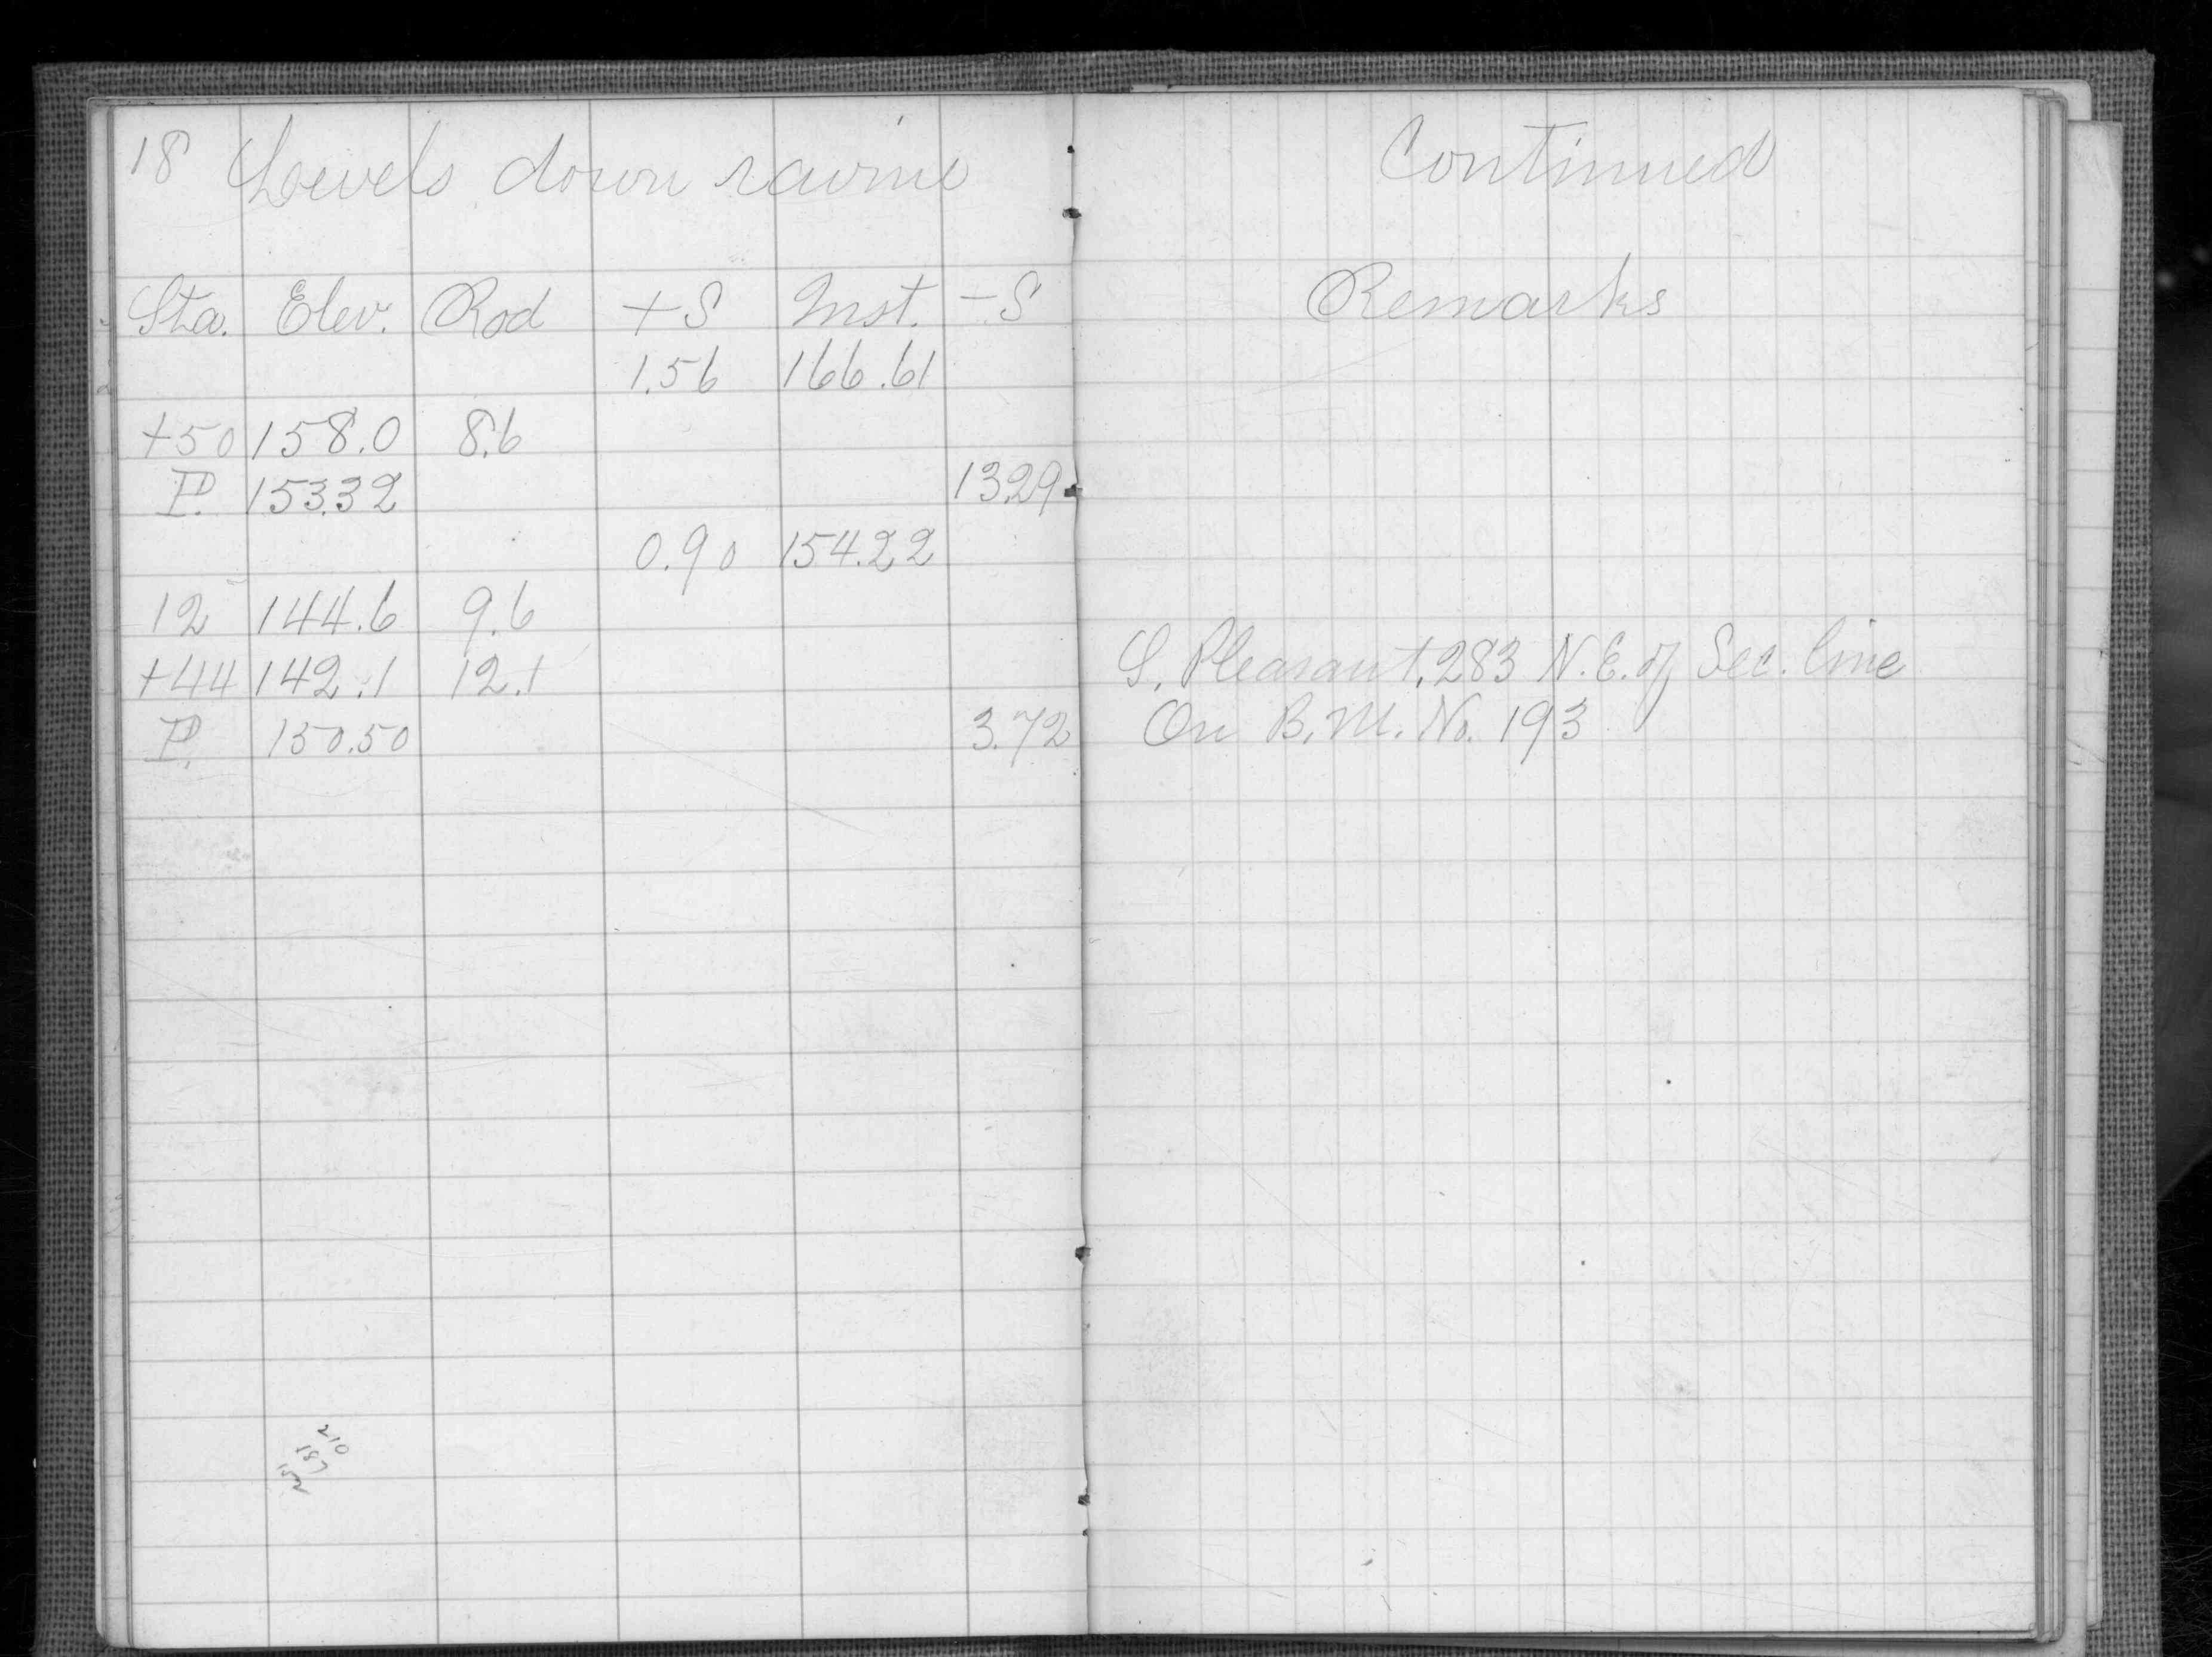 18 Levels down ravine Continued
Sta. Elev. Rod +S Inst. -S Remarks
1.56 166.61
+50 158.0 8.6
P. 153.32 13.29
0.90 154.22
12 144.6 9.6
+44 142.1 12.1 S. Pleasant, 283 N.E. of Sec. line
P. 150.50 3.72 On B.M. No. 193